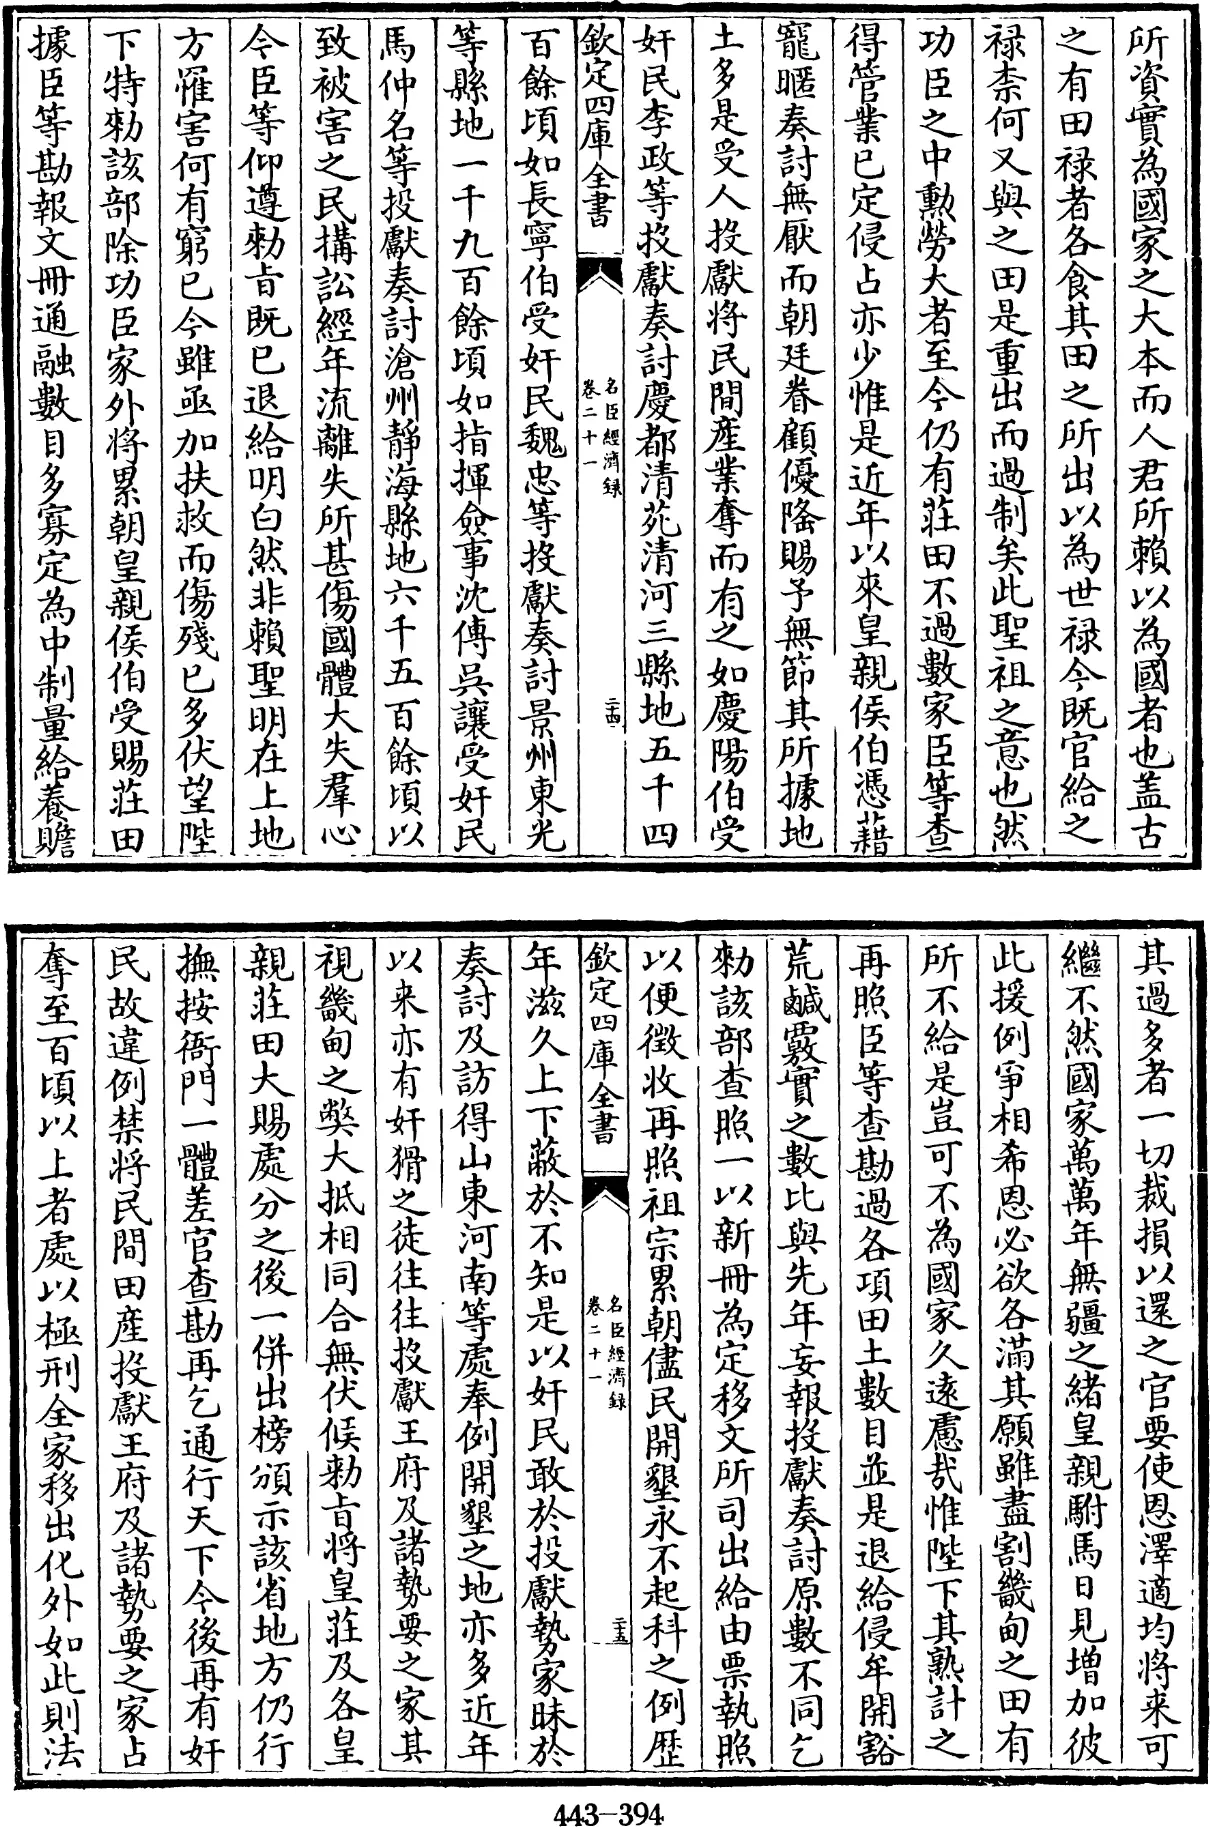 所資實為國家之大本而人君所賴以為國者也盖古
之有田禄者各食其田之所出以為世禄今既官給之
禄柰何又與之田是重出而過制矣此聖祖之意也然
功臣之中勲勞大者至今仍有莊田不過數家臣等查
得管業已定侵占亦少惟是近年以來皇親侯伯憑藉
寵暱奏討無厭而朝廷眷顧優隆賜予無節其所據地
土多是受人投獻將民間產業奪而有之如慶陽伯受
奸民李政等投獻奏討慶都清苑清河三縣地五千四
欽定四庫全書
名臣經濟録
卷二十一
二十四
百餘頃如長寧伯受奸民魏忠等投獻奏討景州東光
等縣地一千九百餘頃如指揮僉事沈傳吳讓受奸民
馬仲名等投獻奏討滄州靜海縣地六千五百餘頃以
致被害之民搆訟經年流離失所甚傷國體大失羣心
今臣等仰遵勅旨既已退給明白然非賴聖明在上地
方罹害何有窮已今雖亟加扶救而傷殘已多伏望陛
下特勅該部除功臣家外將累朝皇親侯伯受賜莊田
據臣等勘報文冊通融數目多寡定為中制量給養贍
其過多者一切裁損以還之官要使恩澤適均將来可
繼不然國家萬萬年無疆之緒皇親駙馬日見增加彼
此援例爭相希恩必欲各滿其願雖盡割畿甸之田有
所不給是豈可不為國家久遠慮哉惟陛下其熟計之
再照臣等查勘過各項田土數目並是退給侵牟開豁
荒鹹覈實之數比與先年妄報投獻奏討原數不同乞
勅該部查照一以新冊為定移文所司出給由票執照
以便徵收再照祖宗累朝儘民開墾永不起科之例歴
欽定四庫全書
名臣經濟録
卷二十一
二十五
年滋久上下蔽於不知是以奸民敢於投獻勢家昧於
奏討及訪得山東河南等處奉例開墾之地亦多近年
以来亦有奸猾之徒往往投獻王府及諸勢要之家其
視畿甸之獘大抵相同合無伏候勅旨將皇莊及各皇
親莊田大賜處分之後一併出榜頒示該省地方仍行
撫按衙門一體差官查勘再乞通行天下今後再有奸
民故違例禁將民間田產投獻王府及諸勢要之家占
奪至百頃以上者處以極刑全家移出化外如此則法
443-394